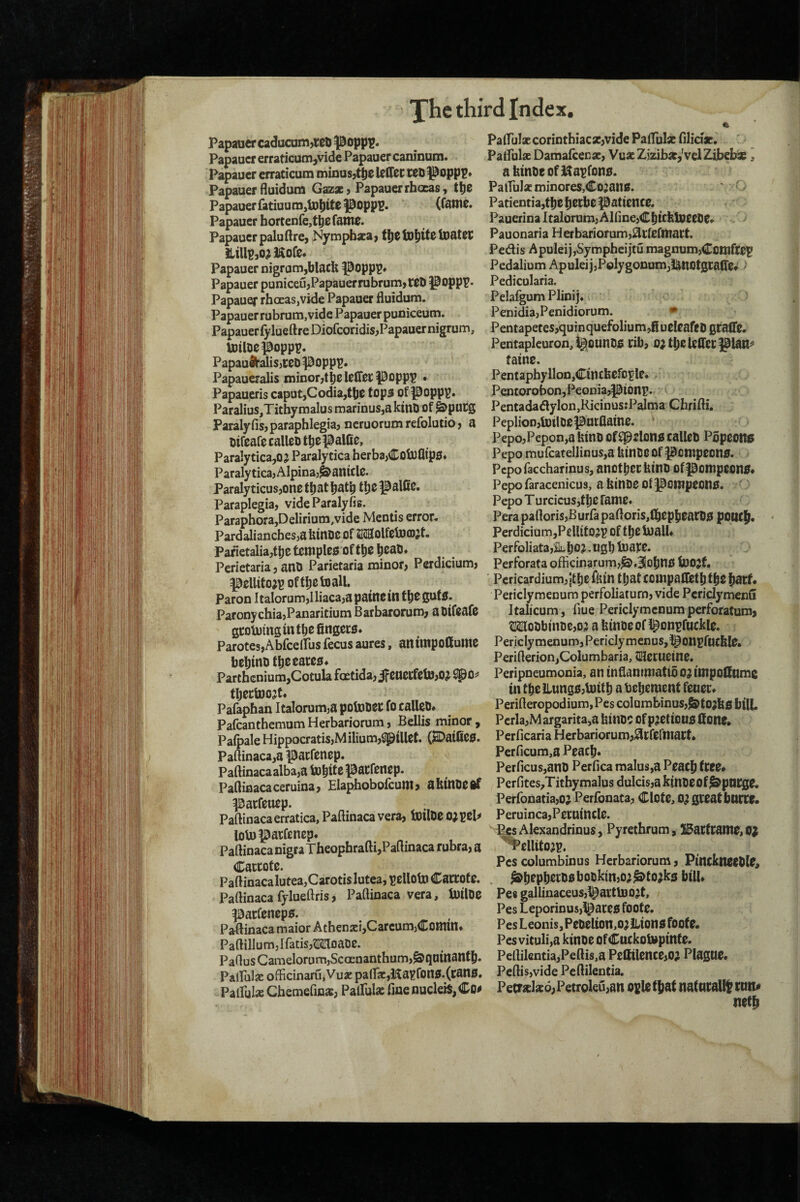 The third Index.
Papauer caducum, red Poppy.
Papauer erraticum, vide Papauer caninum.
Papauer erraticum minus, the lesser red Poppy.
Papauer fluidum Gazæ, Papauer rhœas, the
Papauer satiuum, white Poppy. (same.
Papauer hortense, the same.
Papauer palustre, Nymphæa, the white water
Lilly, or Rose.
Papauer nigrum, black Poppy.
Papauer puniceũ, Papauer rubrum, red Poppy.
Papauer rhœas, vide Papauer fluidum.
Papauer rubrum, vide Papauer puniceum.
Papauer syluestre Dioscoridis, Papauer nigrum,
wilde Poppy.
Papaueralis, red Poppy.
Papaueralis minor, the lesser Poppy .
Papaueris caput, Codia, the tops of Poppy.
Paralius, Tithymalus marinus, a kind of Spurg
Paralysis, paraphlegia, neruorum resolutio, a
disease called the Palsie,
Paralytica, or Paralytica herba, Cowslips.
Paralytica, Alpina, Sanicle.
Paralyticus, one that hath the Palsie.
Paraplegia, vide Paralysis.
Paraphora, Delirium, vide Mentis error.
Pardalianches, a kinde of Wolfewoort.
Parietalia, the temples of the head.
Parietaria, and Parietaria minor, Perdicium,
Pellitory of the wall.
Paron Italorum, Iliaca, a paine in the guts.
Paronychia, Panaritium Barbarorum, a disease
growing in the fingers.
Parotes, Abscessus secus aures, an impostume
behind the eares.
Parthenium, Cotula fœtida, Feuerfew, or Mo-
therwort.
Pasaphan Italorum, a powder so called.
Pascanthemum Herbariorum, Bellis minor,
Paspale Hippocratis, Milium, Millet. (Daisies.
Pastinaca, a Parsenep.
Pastinaca alba, a white Parsenep.
Pastinaca ceruina, Elaphoboscum, a kinde of
Parsenep.
Pastinaca erratica, Pastinaca vera, wilde or yel-
low Parsenep.
Pastinaca nigra Theophrasti, Pastinaca rubra, a
Carrote.
Pastinaca lutea, Carotis lutea, yellow Carrote.
Pastinaca syluestris, Pastinaca vera, wilde
Parseneps.
Pastinaca maior Athenæi, Careum, Comin.
Pastillum, Isatis, Woade.
Pastus Camelorum, Scœnanthum, Squinanth.
Passulæ officinarũ, Vuæ passæ, Raysons. (rans.
Passulæ Chemesinæ, Passulæ sine nucleis, Co-
Passulæ corinthiacæ, vide Passulæ siliciæ.
Passulæ Damascenæ, Vuæ Zizibæ, vel Zibebæ,
a kinde of Raysons.
Passulæ minores, Corans.
Patientia, the herbe Patience.
Pauerina Italorum, Alsine, Chickweede.
Pauonaria Herbariorum, Arsesmart.
Pectis Apuleij, Sympheijtũ magnum, Comfrey
Pedalium Apuleij, Polygonum, Knotgrasse.
Pedicularia.
Pelasgum Plinij.
Penidia, Penidiorum.
Pentapetes, quinquefolium, fiueleafed grasse.
Pentapleuron, Hounds rib, or the lesser Plan-
taine.
Pentaphyllon, Cinkefoyle.
Pentorobon, Peonia, Piony.
Pentadactylon, Ricinus: Palma Christi.
Peplion, wilde Purslaine.
Pepo, Pepon, a kind of Melons called Popeons
Pepo muscatellinus, a kinde of Pompeons.
Pepo saccharinus, another kind of Pompeons.
Pepo saracenicus, a kinde of Pompeons.
Pepo Turcicus, the same.
Pera pastoris, Bursa pastoris, Shepheards pouch.
Perdicium, Pellitory of the wall.
Perfoliata, Thorough ware.
Perforata officinarum, S. Iohns wort.
Pericardium, the skin that compasseth the hart.
Periclymenum perfoliatum, vide Periclymenũ
Italicum, siue Periclymenum perforatum,
Woodbinde, or a kinde of Honysuckle.
Periclymenum, Periclymenus, Honysuckle.
Peristerion, Columbaria, Verueine.
Peripneumonia, an inflammatiõ or impostume
in the Lungs, with a vehement feuer.
Peristeropodium, Pes columbinus, Storks bill.
Perla, Margarita, a kinde of pretious stone.
Persicaria Herbariorum, Arsesmart.
Persicum, a Peach.
Persicus, and Persica malus, a Peach tree.
Persites, Tithymalus dulcis, a kinde of Spurge.
Personatia, or Personata, Clote, or great burre.
Peruinca, Peruincle.
Pes Alexandrinus, Pyrethrum, Bartrame, or
Pellitory.
Pes columbinus Herbariorum, Pinckneedle,
Shepherds bodkin, or Storks bill.
Pes gallinaceus, Hartwort,
Pes Leporinus, Hares foote.
Pes Leonis, Pedelion, or Lions foote.
Pes vituli, a kinde of Cuckowpinte.
Pestilentia, Pestis, a Pestilence, or Plague.
Pestis, vide Pestilentia.
Petrælæõ, Petroleũ, an oyle that naturally run-
neth